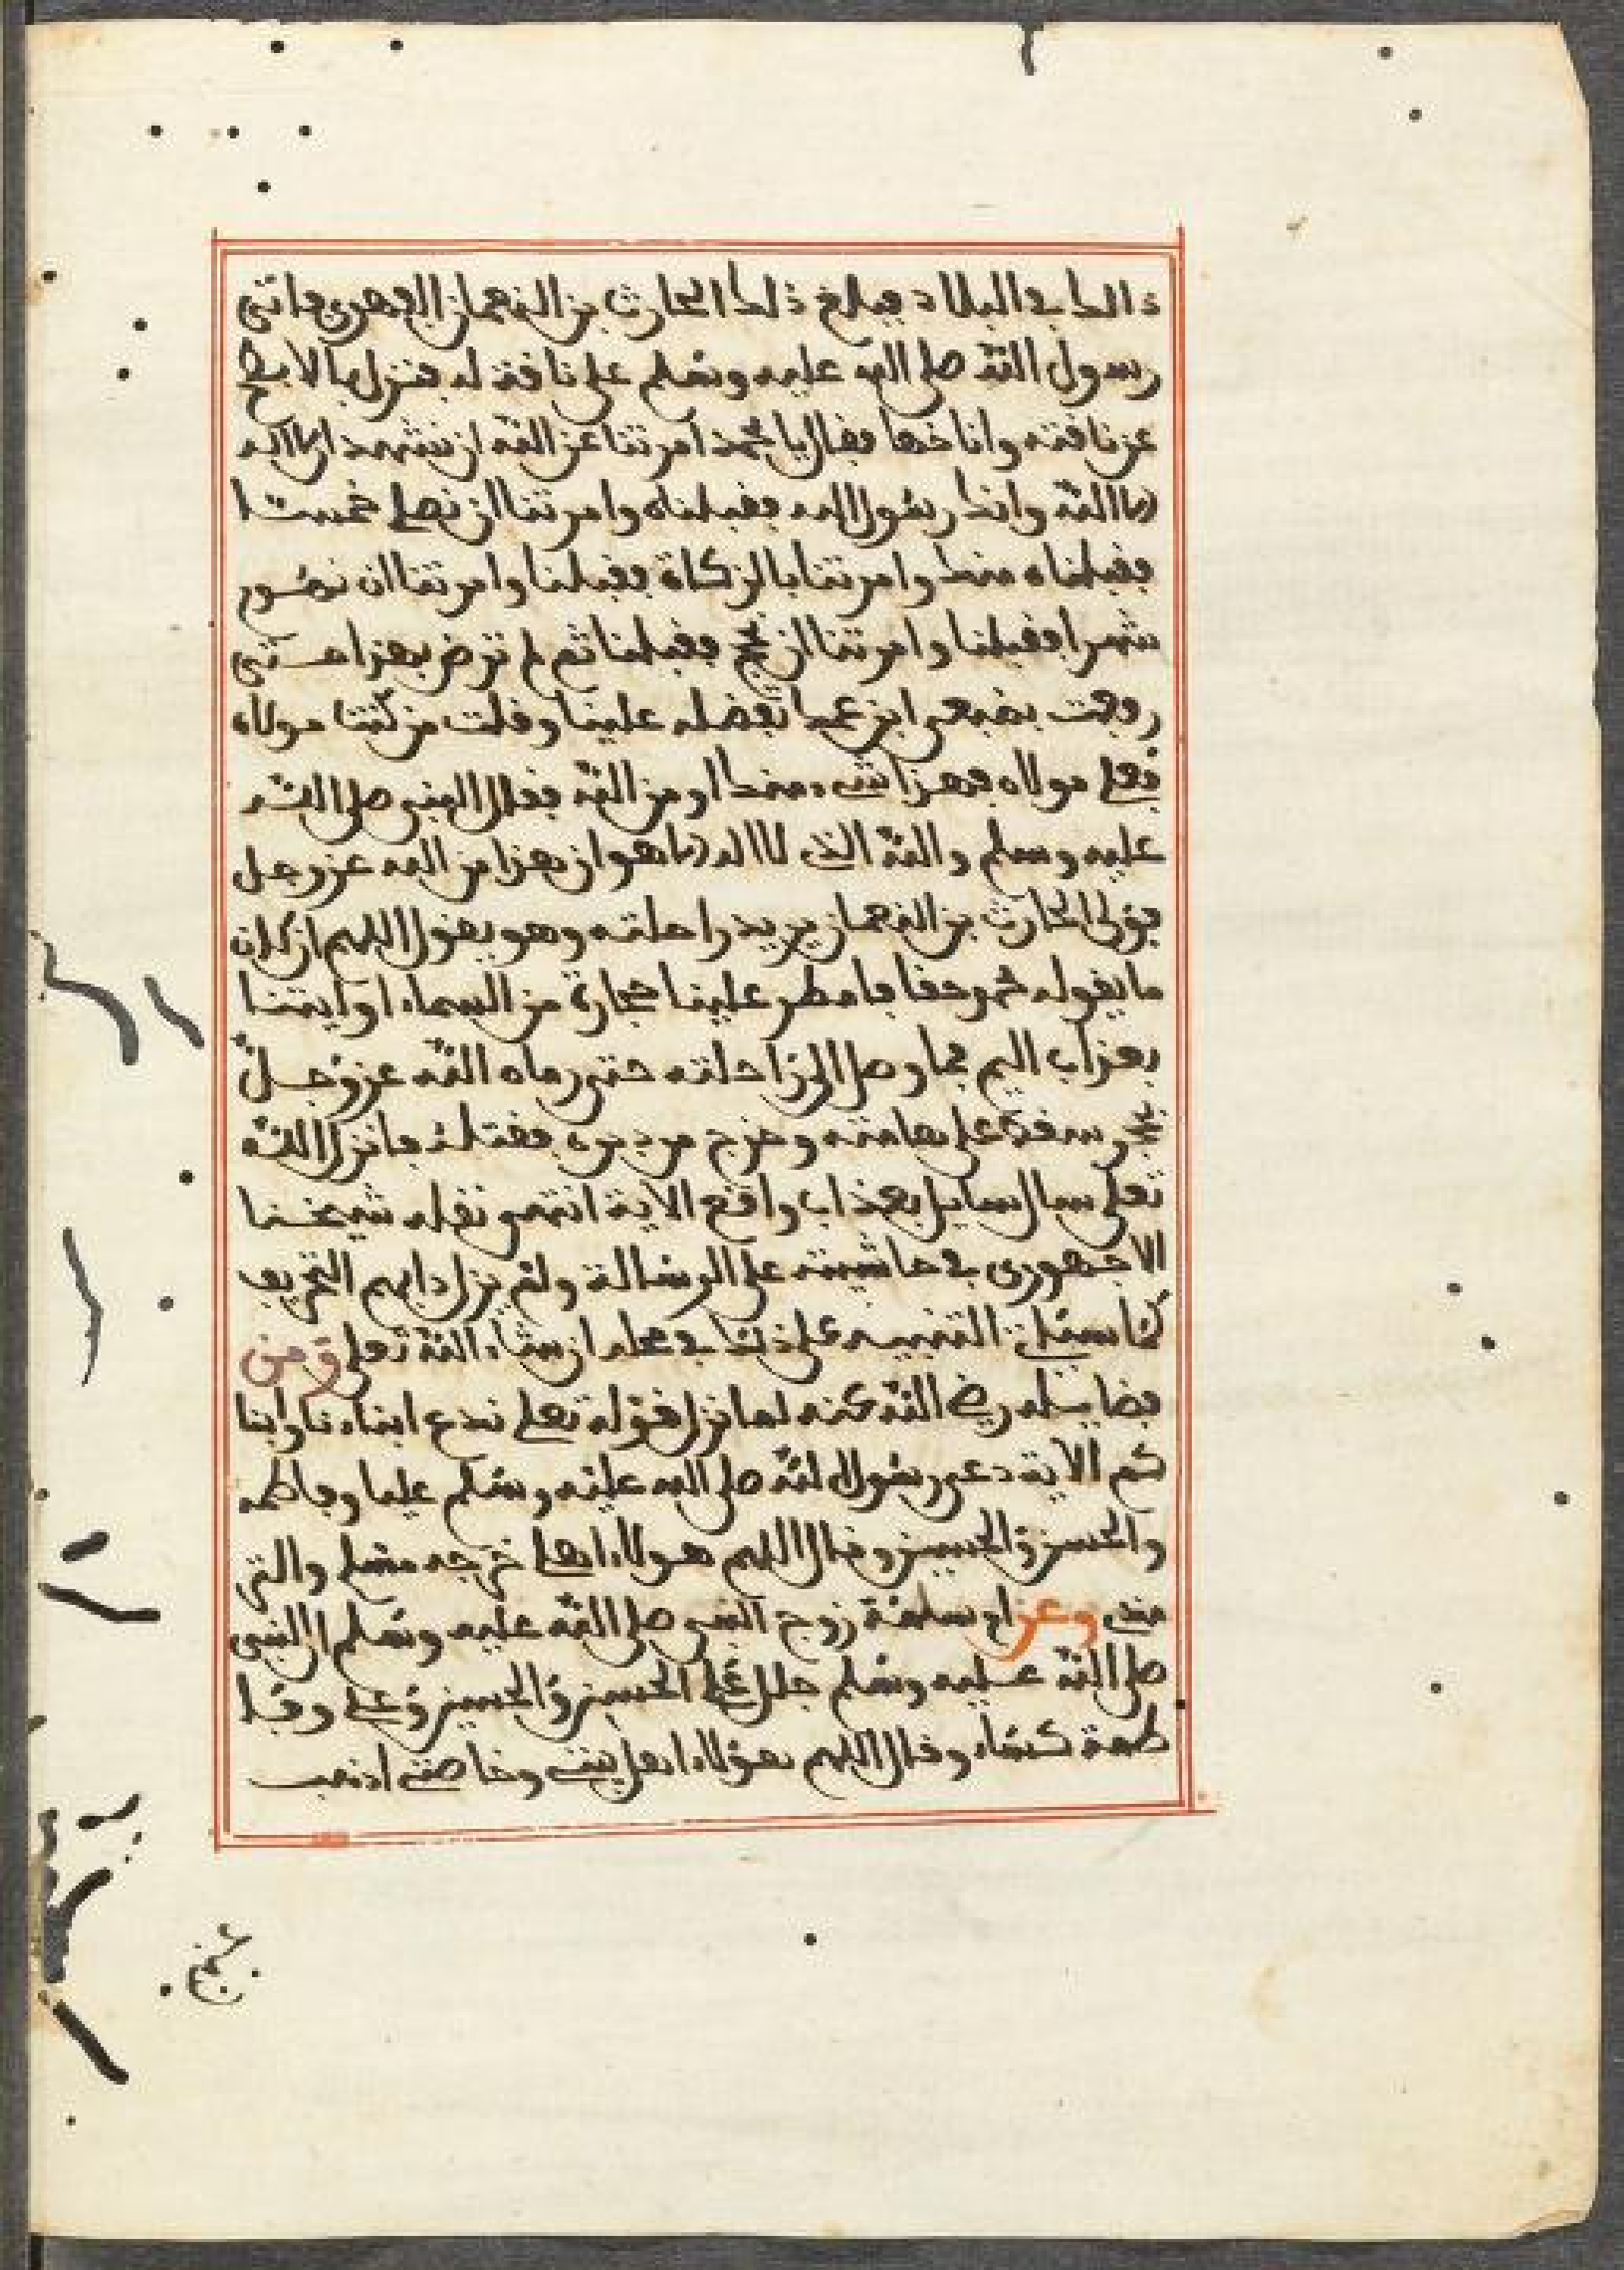 ذالك في البلاد فبلغ ذلك الحارث بن النعمان الفهري فاتى
رسول الله صلى الله عليه وسلم على ناقة له فنزل بالابطح
عن ناقته واناخها فقال يا محمد امرتنا عن الله ان نشهد ان لا اله
الا الله وانك رسول الله فقبلناه وامرتنا ان نصلي خمسا
فقبلناه منك وامرتنا بالزكاة فقبلنا وامرتنا ان نصوم
شهرا فقبلنا وامرتنا ان نحج فقبلنا ثم لم ترض بهذا حتى
رفعت بضبعي ابن عمك تفضله علينا وقلت من كنت مولاه
فعلي مولاه فهذا شيء منك او من الله فقال النبي صلى الله
عليه وسلم والله الذي لا اله الا هو ان هذا من الله عز وجل
فولى الحارث بن النعمان يريد راحلته وهو يقول اللهم ان كان
ما يقوله محمد حقا فامطر علينا حجارة من السماء او ايتنا
بعذاب اليم فما وصل الى راحلته حتى رماه الله عز وجل
بحجر سقط على هامته وخرج من دبره فقتله فانزل الله
تعلى سال سايل بعذاب واقع الاية انتهى نقله شيخنا
الاجهوري في حاشيته على الرسالة ولم يزل دابهم التحريف
كما سيتلى التنبيه على ذلك في محله ان شاء الله تعلى ومن
فضايله رضي الله عنه لما نزل قوله تعلى ندع ابناءنا وابنا
كم الاية دعى رسول الله صلى الله عليه وسلم عليا وفاطمة
والحسن والحسين وقال اللهم هولاء اهلي خرجه مسلم والتر
مذي وعن ام سلمة زوج النبي صلى الله عليه وسلم ان النبي
صلى الله عليه وسلم جلل على الحسن والحسين وعلي وفا
طمة كساء وقال اللهم هؤلاء اهل بيتي وخاصتي اذهب